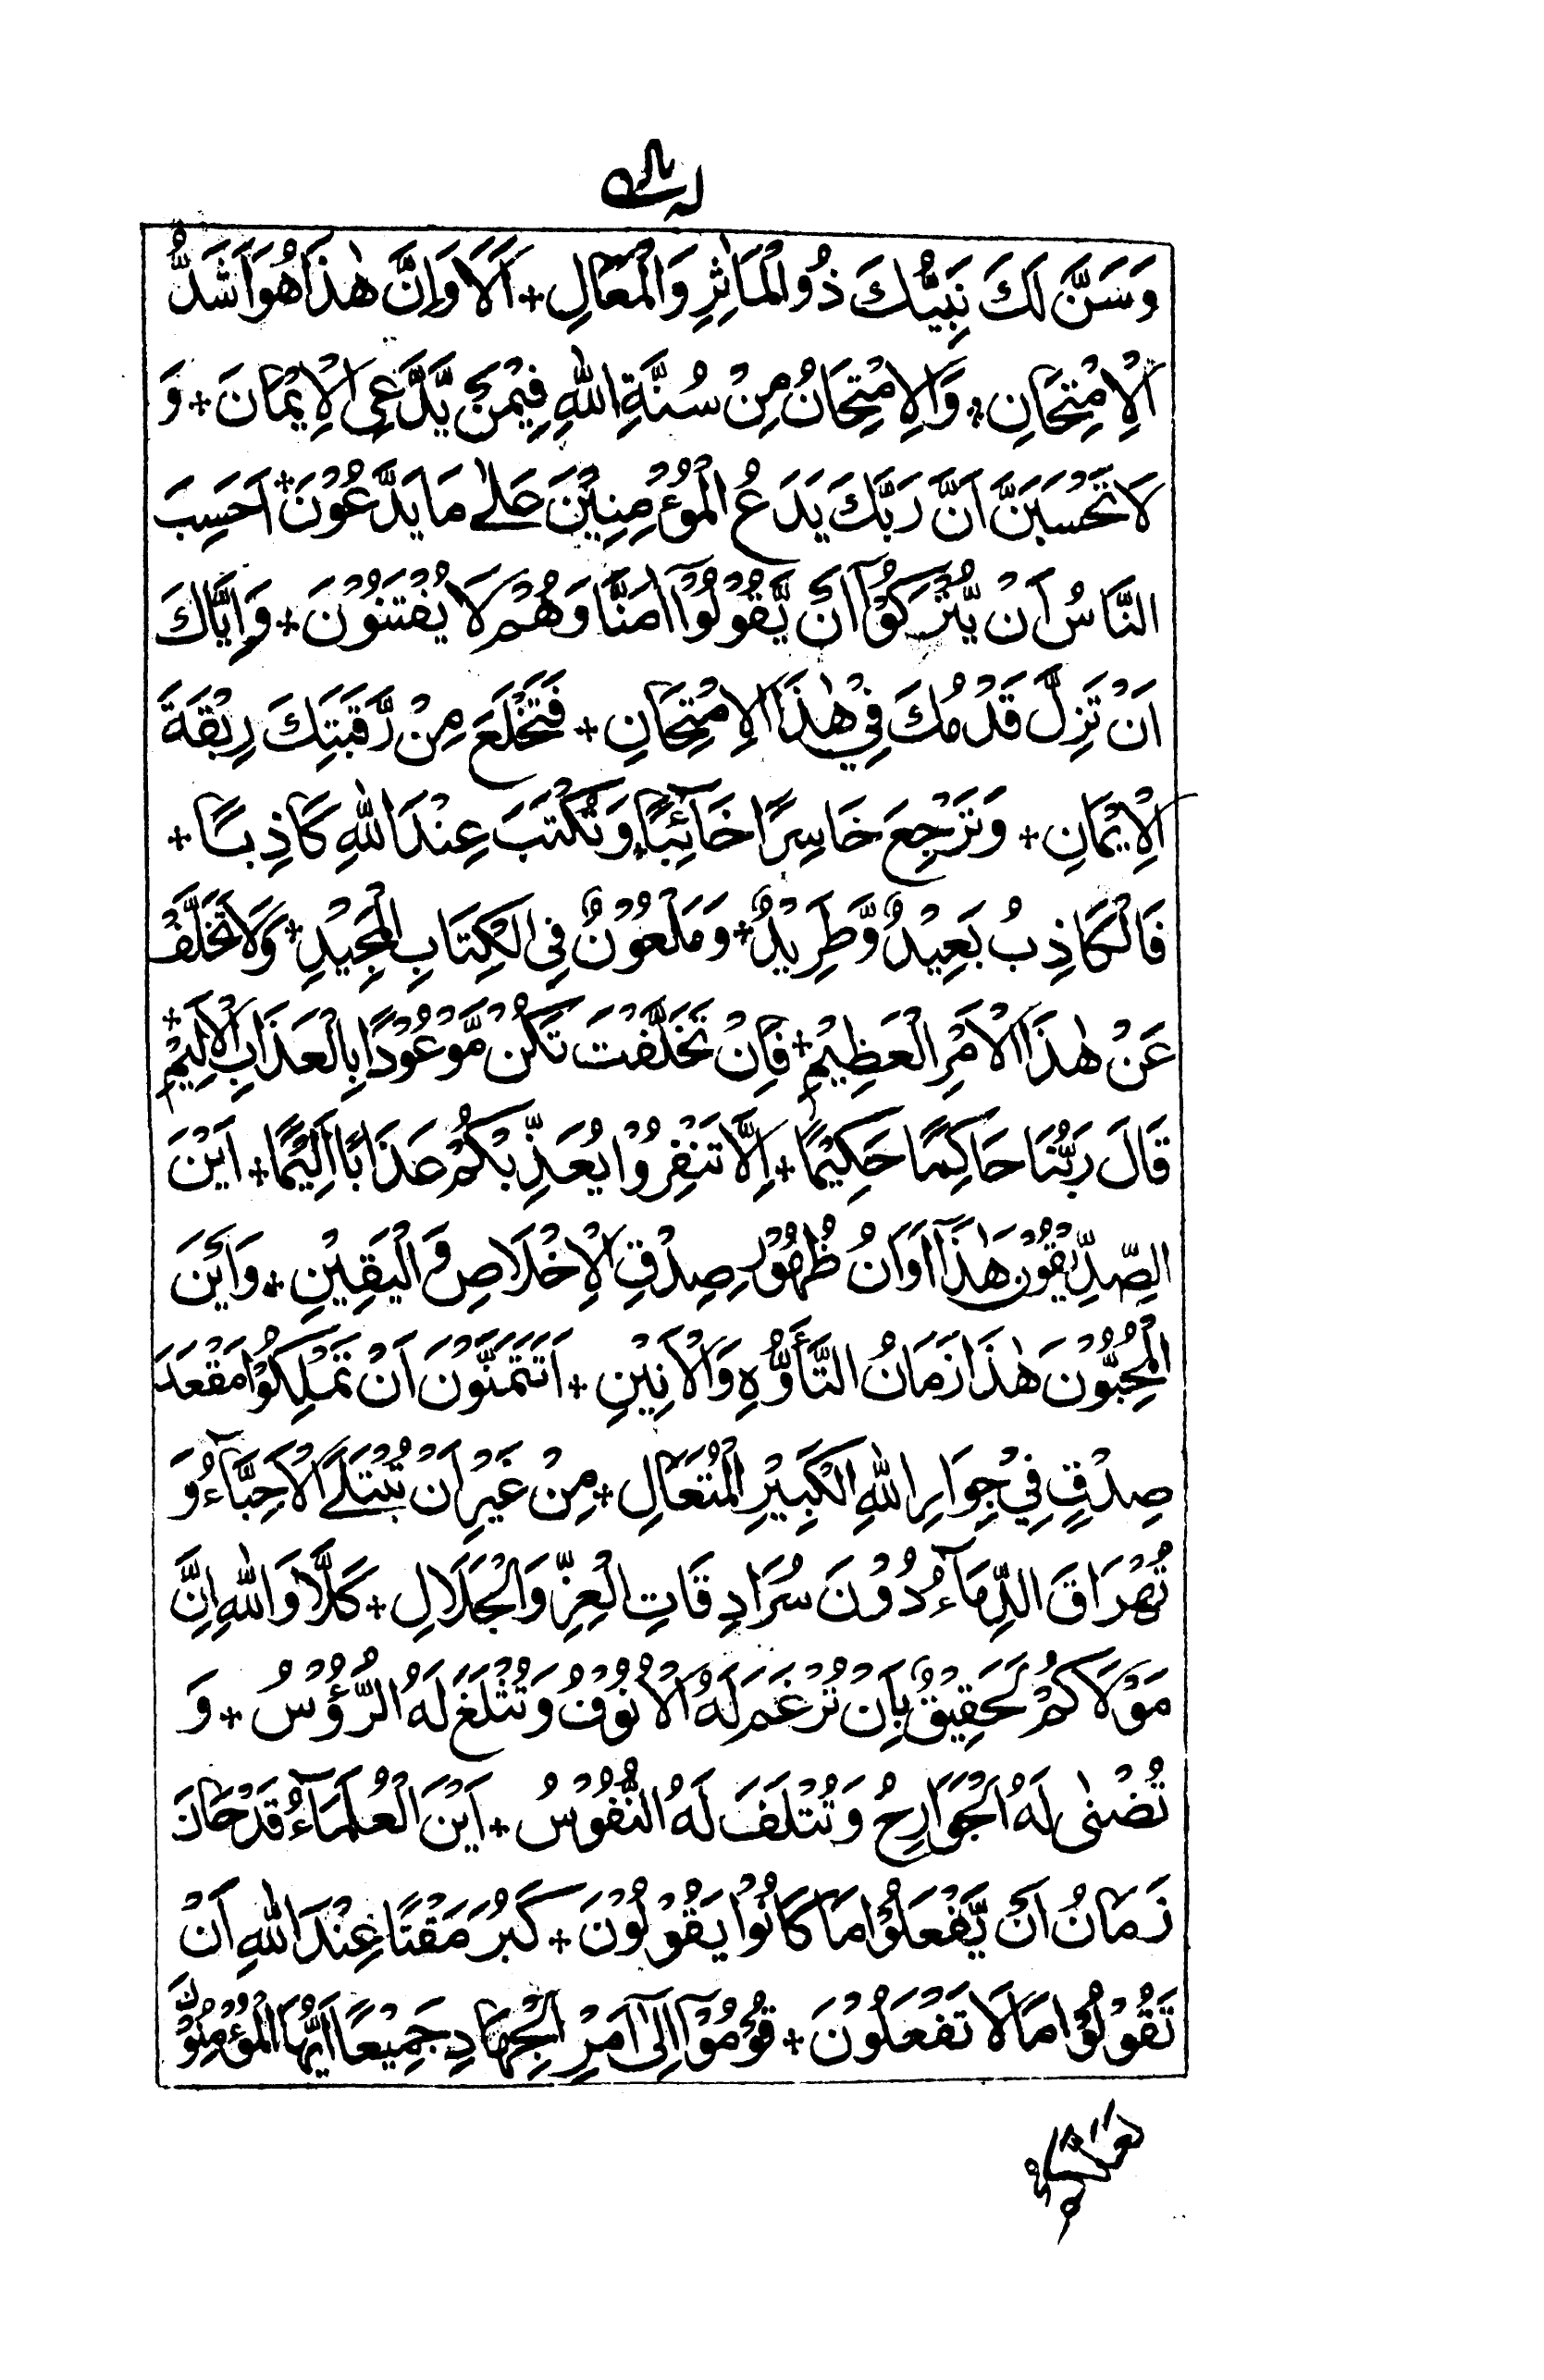 وَسَنَّ لَكَ نَبِيُّكَ ذُو الْمَاٰثِرِ وَالْمَعَالِ + اَلَا وَاِنَّ هٰذَا هُوَ اَشَدُّ
الْاِمْتِحَانِ + وَالْاِمْتِحَانُ مِنْ سُنَّةِ اللّٰهِ فِيْمَنْ يَّدَّعِى الْاِيْمَانَ + وَ
لَا تَحْسَبَنَّ اَنَّ رَبَّكَ يَدَعُ الْمُؤْمِنِيْنَ عَلٰى مَا يَدَّعُوْنَ + اَحَسِبَ
النَّاسُ اَنْ يُّتْرَكُوْٓا اَنْ يَّقُوْلُوْٓا اٰمَنَّا وَهُمْ لَا يُفْتَنُوْنَ + وَاِيَّاكَ
اَنْ تَزِلَّ قَدَمُكَ فِيْ هٰذَا الْاِمْتِحَانِ + فَتَخْلَعَ مِنْ رَّقَبَتِكَ رِبْقَةَ
الْاِيْمَانِ + وَتَرْجِعَ خَاسِرًا خَآئِبًا + وَتُكْتَبَ عِنْدَ اللّٰهِ كَاذِبًا +
فَالْكَاذِبُ بَعِيْدٌ وَّطَرِيْدٌ + وَمَلْعُوْنٌ فِى الْكِتَابِ الْمَجِيْدِ + وَلَا تَخَلَّفْ
عَنْ هٰذَا الْاَمْرِ الْعَظِيْمِ + فَاِنْ تَخَلَّفْتَ تَكُنْ مَّوْعُوْدًا بِالْعَذَابِ الْاَلِيْمِ +
قَالَ رَبُّنَا حَاكِمًا حَكِيْمًا + اِلَّا تَنْفِرُوْا يُعَذِّبْكُمْ عَذَابًا اَلِيْمًا + اَيْنَ
الصِّدِّيْقُوْنَ هٰذَا اَوَانُ ظُهُوْرِ صِدْقِ الْاِخْلَاصِ وَ الْيَقِيْنِ + وَاَيْنَ
الْمُحِبُّوْنَ هٰذَا زَمَانُ التَّأَوُّهِ وَالْاَنِيْنِ + اَتَتَمَنَّوْنَ اَنْ تَمْلِكُوْا مَقْعَدَ
صِدْقٍ فِيْ جِوَارِ اللّٰهِ الْكَبِيْرِ الْمُتَعَالِ + مِنْ غَيْرِ اَنْ تُبْتَلَى الْاَحِبَّآءُ وَ
تُهْرَاقَ الدِّمَآءُ دُوْنَ سُرَادِقَاتِ الْعِزِّ وَالْجَلَالِ + كَلَّا وَاللّٰهِ اِنَّ
مَوْلَاكُمْ لَحَقِيْقٌ بِاَنْ تُرْغَمَ لَهُ الْاُنُوْفُ وَتُثْلَغَ لَهُ الرُّؤُوْسُ + وَ
تُضْنٰى لَهُ الْجَوَارِحُ وَتُتْلَفَ لَهُ النُّفُوْسُ + اَيْنَ الْعُلَمَآءُ قَدْ حَانَ
زَمَانُ اَنْ يَّفْعَلُوْا مَا كَانُوْا يَقُوْلُوْنَ + كَبُرَ مَقْتًا عِنْدَ اللّٰهِ اَنْ
تَقُوْلُوْا مَا لَا تَفْعَلُوْنَ + قُوْمُوْٓا اِلٰٓى اَمْرِ الْجِهَادِ جَمِيْعًا اَيُّهَا الْمُؤْمِنُوْنَ